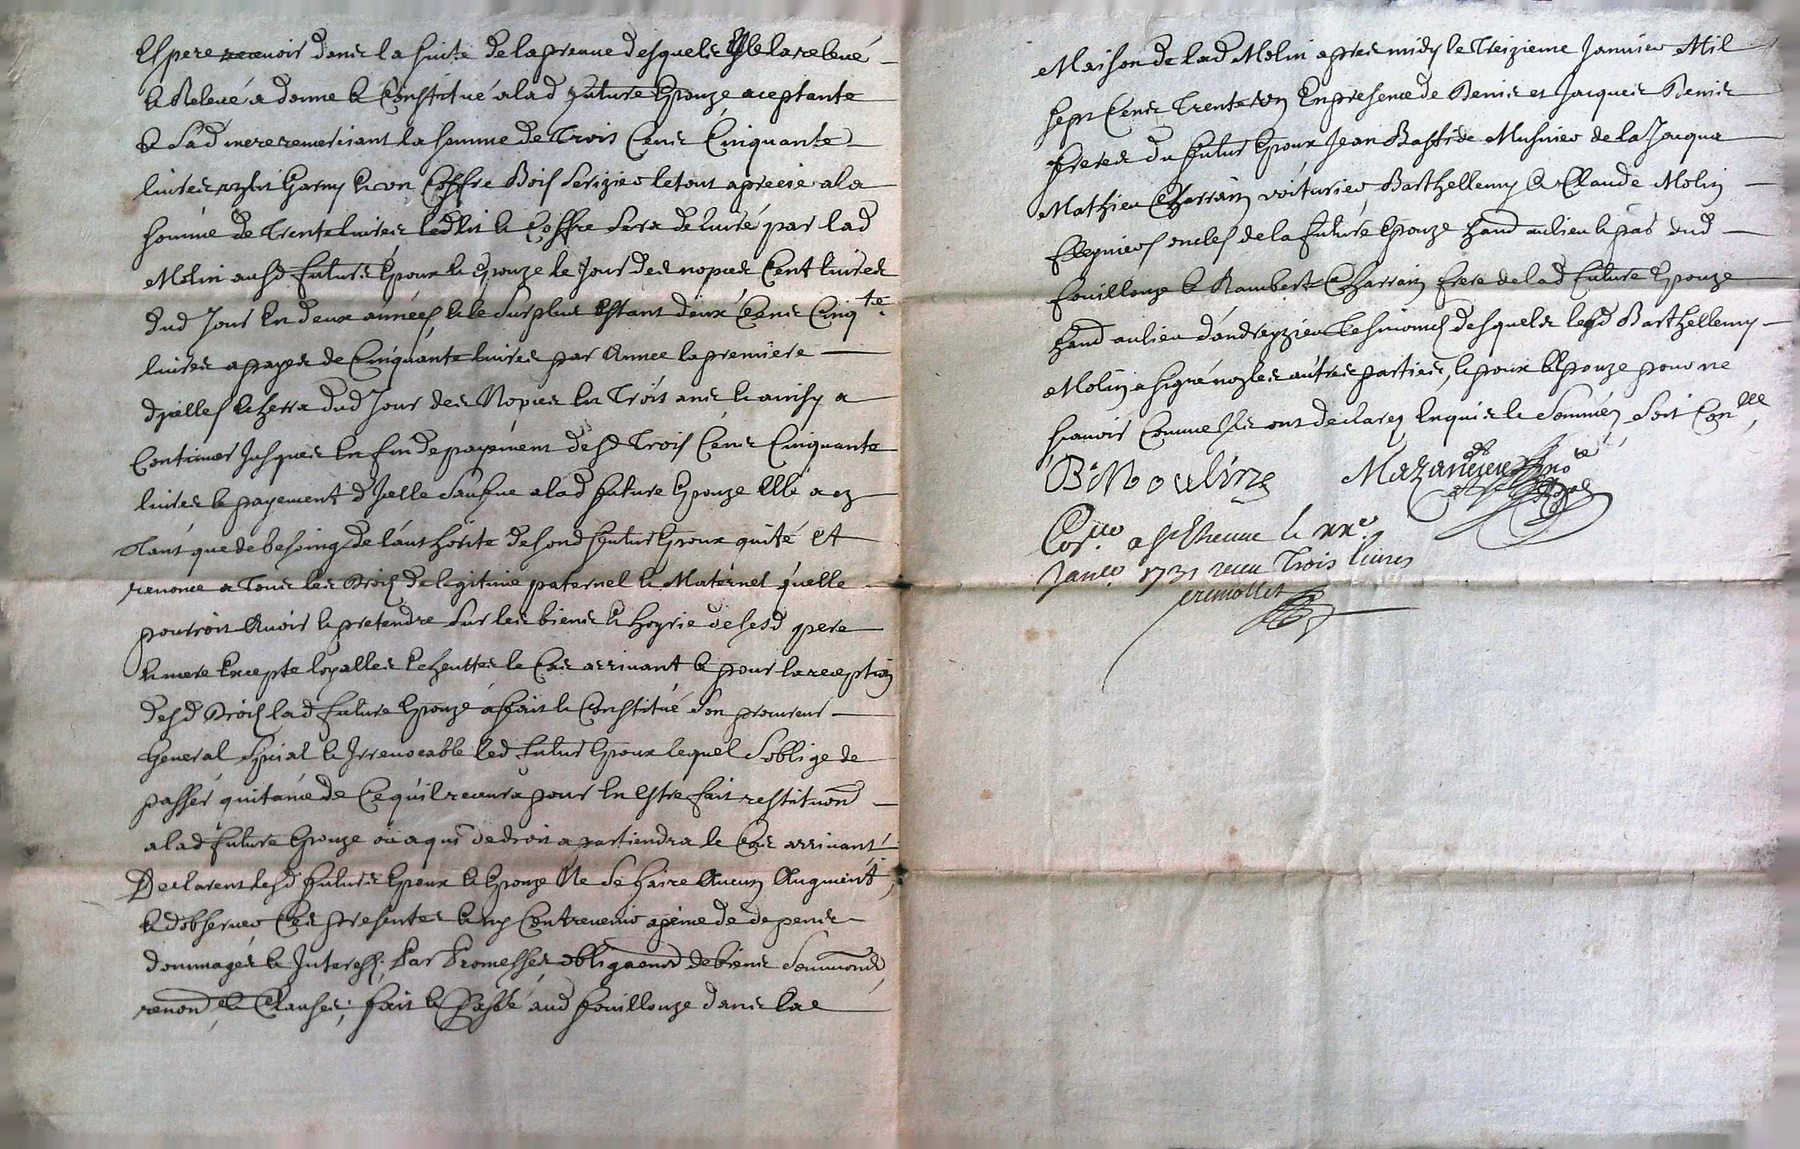 Espere recevoir dans la suite de la preuve desquels Elle la relevé
le Relevé a donne & Constitué a lad future Epouze aceptante
& sad mere remersiant la somme de Trois Cens Cinquante
livres un lit Garny & un Coffre Bois Serizier le tout aprecié a la
somme de Trente livres led lit & Coffre sera delivré par lad
Molin ausd futurs Epoux & Epouze le Jour des nopces Cent livres
dud Jour En deux années & le surplus Estant deux Cens Cinqte
livres a payer de Cinquante livres par Annee la premiere
d'jcelles Echerra dud Jour des Nopces En Trois ans & ainsy a
Continuer Jusques En fin de payement desd Trois Cens Cinquante
livres & payement d'Jcelle lad future Epouze Elle a en
Tant que de besoing de l'authorité de sond futur Epoux quité Et
renoncé a Tous les Droits de legitime paternel & Maternel qu'elle
pourroit Avoir & pretendre sur les biens & hoyrie de sesd pere
& mere Excepté loyalles Echeuttes le Cas arrivant & pour la reception
desd Droits lad future Epouze a fait & Constitué son procureur
General Special & Irrevocable led futur Epoux lequel s'oblige de
passer quitance de Ce qu'il recevra pour En Estre fait restituon
a lad future Epouze ou a qui de droit apartiendra le Cas arrivant
Declarent lesd futurs Epoux & Epouze Ne se faire Aucun Augment
& d'observer Ces presentes & ny Contrevenir a peine de depens
dommages & Interests Par Promesses obligaons de biens Soummons
renon & Clauses; fait & Passé aud fouillouze dans la
Maison de lad Molin apres midy le Treizieme Janvier Mil
sept Cens Trente un En presence de Denis et Jacques Denis
freres du futur Epoux Jean Baptiste Musnier de la Jacqua
Mathieu Charrain voiturier Barthellemy & Claude Molin
oncles de la future Epouze hand au lieu & pas dud
fouillouze & Rambert Charrain frere de lad future Epouze
hand au lieu d'andrezieu Tesmoins desquels led Barthellemy
Molin a signé non les autres parties, Epoux & Epouze pour ne
sçavoir Comme Ils ont declarés Enquis & Sommés, Soit Conlle
B Moulins
Conlle a st Etienne le xxe
Janer 1731 receu Trois livres